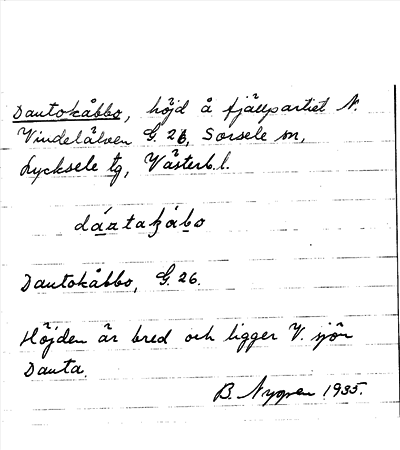 Dautokåbbo, höjd å fjällpartiet N.
Vindelälven G. 26, Sorsele sn,
Lycksele tg, Västerb. l.
dáutakåbo
Dautokåbbo, G. 26.
Höjden är bred och ligger V. sjön
Dauta.
B. Nygren 1935.